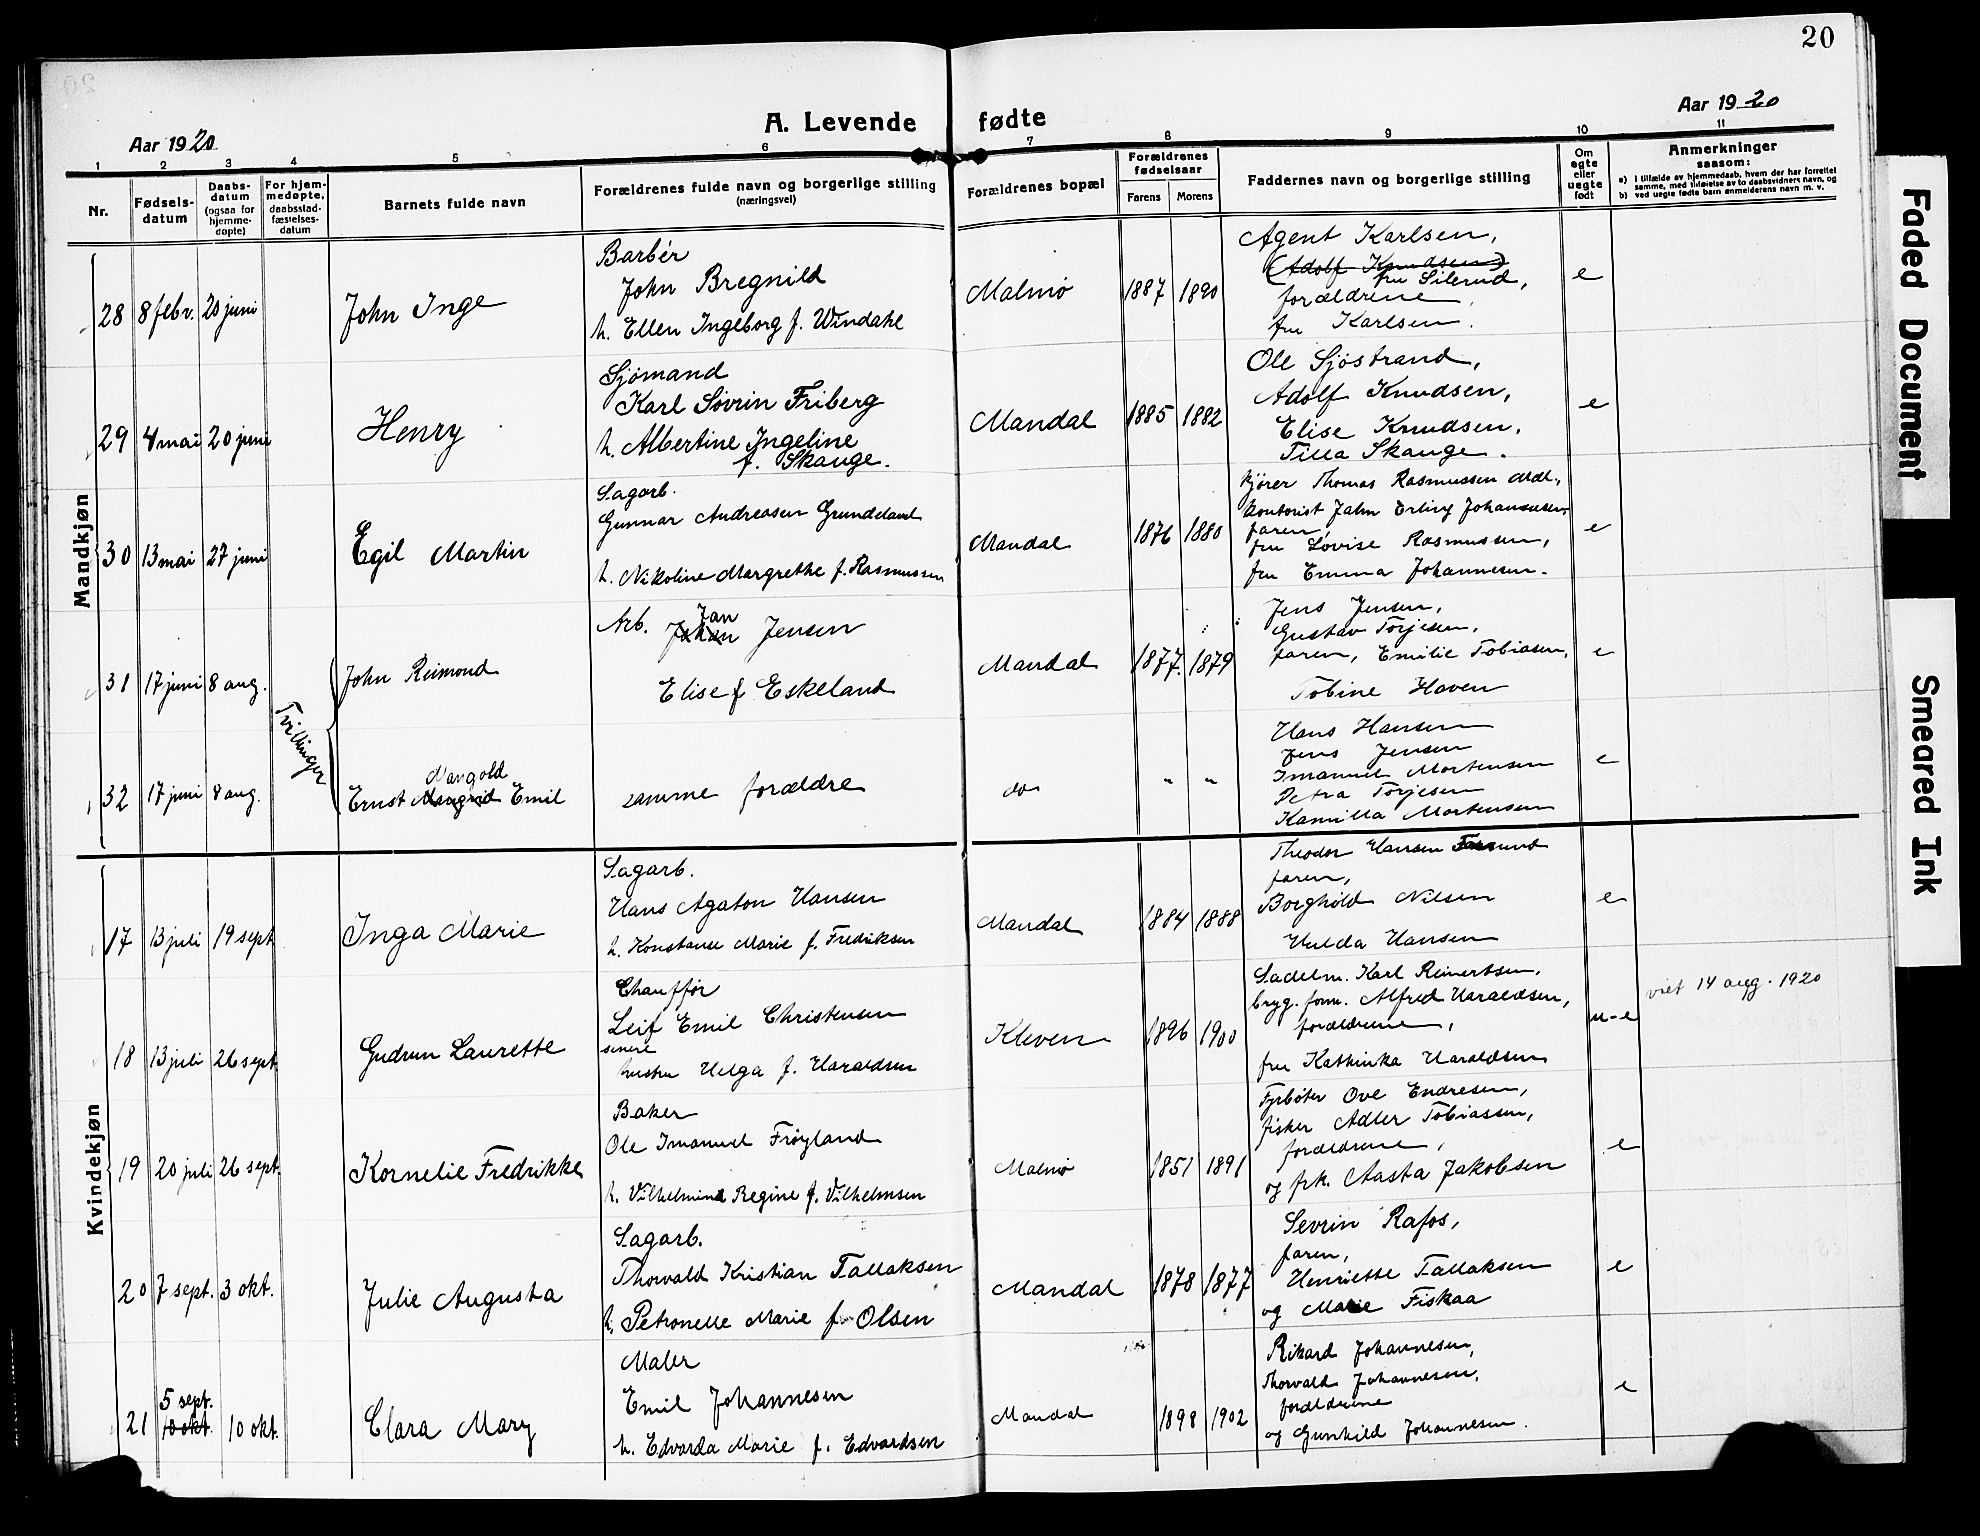 20
A. Levende fødte
Aar 1920
Aar 1920
1 2 3 4 5 6 7 8 9 10 11
Nr.
Fødsels-
datum
Daabs-
datum
(ogsaa for
hjemme-
døpte)
For hjem-
medøpte,
daabsstad-
fæstelses-
datum
Barnets fulde navn
Forældrenes fulde navn og borgerlige stilling
(næringsvei)
Forældrenes bopæl
Forældrenes
fødselsaar
Farens Morens
Faddernes navn og borgerlige stilling
Om
egte
eller
uegte
født
Anmerkninger
saasom:
a) I tilfælde av hjemmedaab, hvem der har forrettet
samme, med tilføielse av to daabsvidners navn, og
b) ved uegte fødte barn anmelderens navn m. v.
Mandkjøn
28 8 febv. 20 juni
John Inge
Barbér
John Bregnild
h. Ellen Ingeborg f. Windahl
Malmø 1887 1890
Agent Karlsen,
(Adolf Knudsen)
fru Silerud,
forældrene,
fru Karlsen.
e
29 4 mai 20 juni
Henry
Sjømand
Karl Søvrin Friberg
h. Albertine Ingeline
f. Skauge.
Mandal 1885 1882
Ole Sjøstrand,
Adolf Knudsen,
Elise Knudsen,
Tilla Skauge.
e
30 13 mai 27 juni
Egil Martin
Sagarb.
Gunnar Andreasen
h. Nikoline Margrethe f. Rasmussen
Mandal 1876 1880
Kjører Thomas Rasmussen
Kontorist Erling Johannesen,
faren,
fru Lovise Rasmussen,
fru Emma Johannesen.
e
31 17 juni 8 aug.
Tvillinger
John Reimond
Arb. Johan Jan Jensen
Elise f Eskeland
Mandal 1877. 1879
Jens Jensen,
Gustav Torjesen,
faren, Emilie Tobiasen,
Tobine Haven
e
32 17 juni 8 aug.
Mangold
Ernst Emil
samme forældre
do " "
Hans Hansen
Jens Jensen
Imanuel Mortensen
Petra Torjesen
Kamilla Mortensen
e
Kvindekjøn
17 13 juli 19 sept
Inga Marie
Sagarb.
Hans Agaton Hansen
h. Konstance Marie f. Fredriksen
Mandal 1884 1888
Theodor Hansen
faren,
Borghild Nilsen
Hulda Hansen
e
18 13 juli 26 sept.
Gudrun Laurette
Chauffør
Leif Emil Christensen
senere
hustru Helga f. Haraldsen
Kleven 1896 1900
Sadelm. Karl Reinertsen,
bryg. form. Alfred Haraldsen,
forældrene,
fru Kathinka Haraldsen
u-e
viet 14 aug. 1920
19 20 juli 26 sept.
Kornelie Fredrikke
Baker
Ole Imanuel Frøyland
h. Vilhelmine Regine f. Vilhelmsen
Malmø 1851 1891
Fyrbøter Ove Endresen,
fisker Adler Tobiassen,
forældrene,
og frk. Aasta Jakobsen
e
20 7 sept. 3 okt.
Julie Augusta
Sagarb.
Thorvald Kristian Tallaksen
h. Petronelle Marie f. Olsen
Mandal 1878 1877
Sevrin Rafos,
faren,
Henriette Tallaksen
og Marie Fiskaa
e
5 sept.
21 10 okt. 10 okt.
Clara Mary
Maler
Emil Johannesen
h. Edvarda Marie f. Edvardsen
Mandal 1898 1902
Rikard Johannesen,
Thorvald Johannesen,
forældrene
og Gunhild Johannesen.
e
Faded Document
Smeared Ink